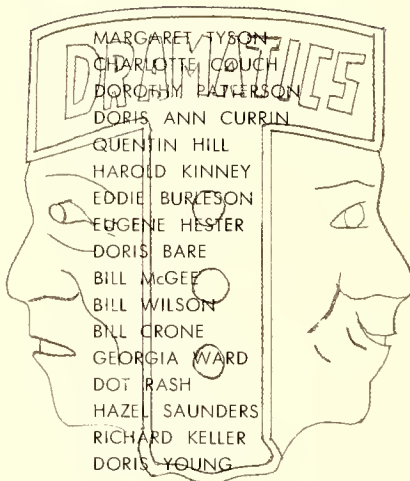 DRAMATICS
MARGARET TYSON
CHARLOTTE COUCH
DOROTHY PATTERSON
DORIS ANN CURRIN
QUENTIN HILL
HAROLD KINNEY
EDDIE BURLESON
EUGENE HESTER
DORIS BARE
BILL McGEE
BILL WILSON
BILL CRONE
GEORGIA WARD
DOT RASH
HAZEL SAUNDERS
RICHARD KELLER
DORIS YOUNG